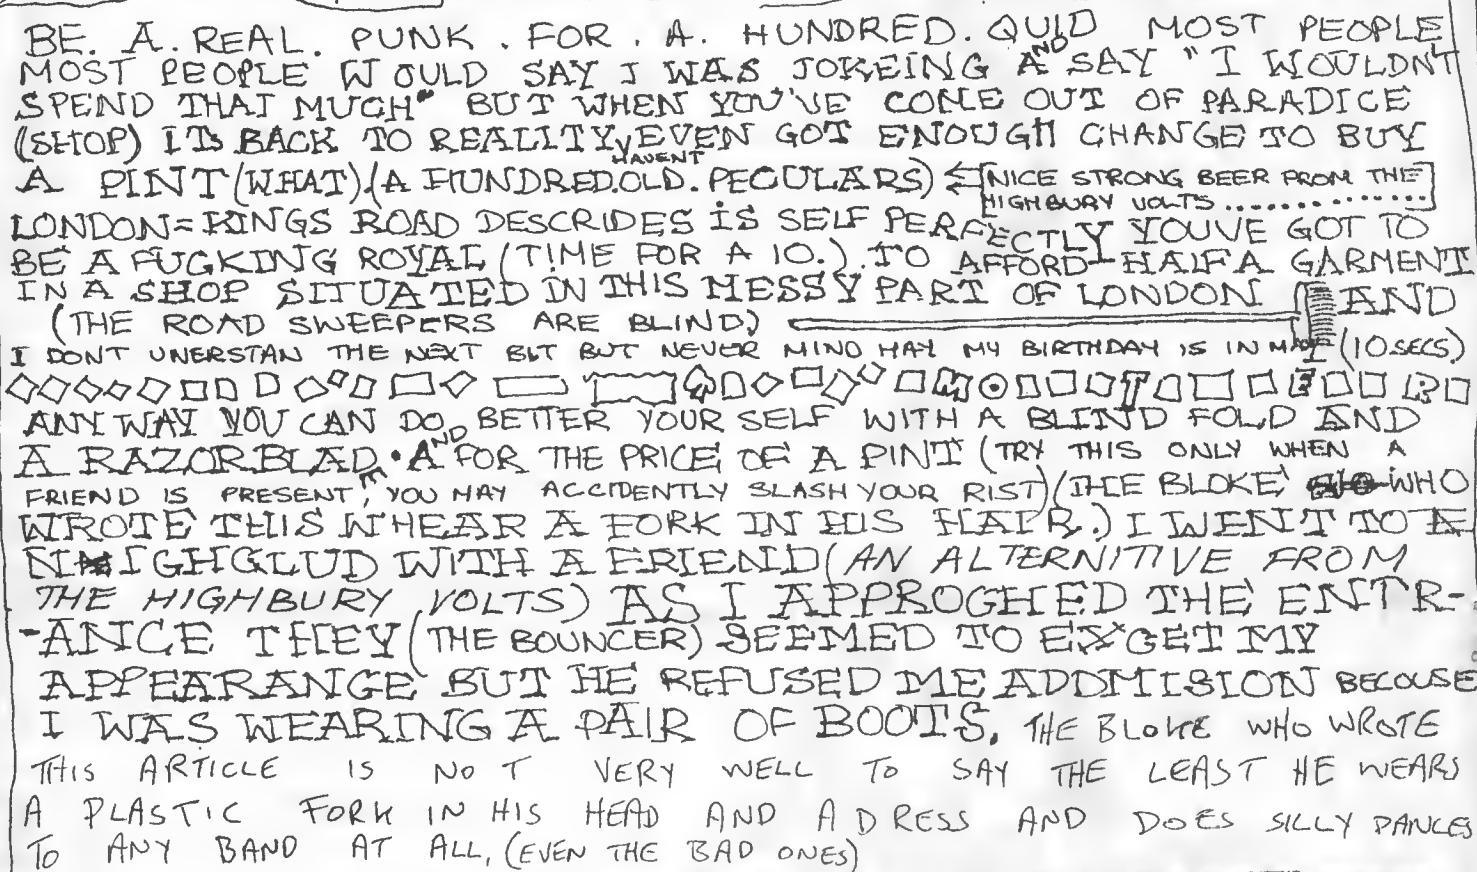 BE. A. REAL. PUNK. FOR. A. HUNDRED. QUID MOST PEOPLE
MOST PEOPLE WOULD SAY I WAS JOKEING AND SAY "I WOULDN'T
SPEND THAT MUCH" BUT WHEN YOU'VE COME OUT OF PARADICE
(SHOP) ITS BACK TO REALITY, HAVENT EVEN GOT ENOUGH CHANGE TO BUY
A PINT (WHAT) (A HUNDRED.OLD. PECULARS) NICE STRONG BEER FROM THE
HIGHBURY VOLTS..............
LONDON = KINGS ROAD DESCRIDES IS SELF PERFECTLY YOUVE GOT TO
BE A FUCKING ROYAL (TIME FOR A 10.) TO AFFORD HALF A GARMENT
IN A SHOP SITUATED IN THIS MESSY PART OF LONDON AND
(THE ROAD SWEEPERS ARE BLIND.)
I DONT UNERSTAN THE NEXT BIT BUT NEVER MIND HAY MY BIRTHDAY IS IN MAY (10SECS)
ANYWAY YOU CAN DO BETTER YOUR SELF WITH A BLIND FOLD AND
A RAZORBLADE. AND FOR THE PRICE OF A PINT (TRY THIS ONLY WHEN A
FRIEND IS PRESENT, YOU MAY ACCIDENTLY SLASH YOUR RIST) (THE BLOKE WHO
WROTE THIS WHEAR A FORK IN HIS HAIR.) I WENT TO A
NIGHGLUD WITH A FRIEND (AN ALTERNITIVE FROM
THE HIGHBURY VOLTS) AS I APPROGHED THE ENTR-
-ANCE THEY (THE BOUNCER) SEEMED TO EXCET MY
APPEARANGE BUT HE REFUSED ME ADDMISION BECOUSE
I WAS WEARING A PAIR OF BOOTS. THE BLOKE WHO WROTE
THIS ARTICLE IS NOT VERY WELL TO SAY THE LEAST HE WEARS
A PLASTIC FORK IN HIS HEAD AND A DRESS AND DOES SILLY DANCES
TO ANY BAND AT ALL, (EVEN THE BAD ONES)